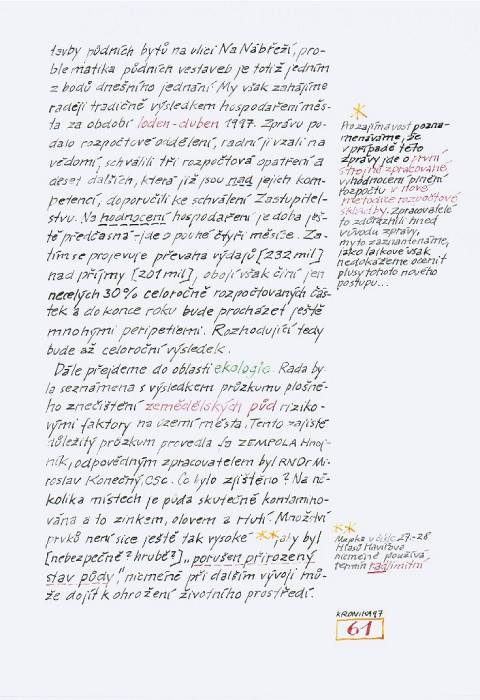 tavby půdních bytů na ulici Na Nábřeží, pro-
blematika půdních vestaveb je totiž jedním
z bodů dnešního jednání. My však zahájíme
raději tradičně výsledkem hospodaření měs-
ta za období leden-duben 1997. Zprávu po-
dalo rozpočtové oddělení, radní ji vzali na
vědomí, schválili tři rozpočtová opatření a
deset dalších, která již jsou nad jejich kom-
petencí, doporučili ke schválení Zastupitel-
stvu. Na hodnocení hospodaření je doba ješ-
tě předčasná - jde o pouhé čtyři měsíce. Za-
tím se projevuje převaha výdajů [232 mil]
nad příjmy [201 mil], obojí však činí jen
necelých 30% celoročně rozpočtovaných čás-
tek a do konce roku bude procházet ještě
mnohými peripetiemi. Rozhodující tedy
bude až celoroční výsledek.
Dále přejdeme do oblasti ekologie. Rada by-
la seznámena s výsledkem průzkumu plošné-
ho znečištění zemědělských půd riziko-
vými faktory na území města. Tento zajisté
důležitý průzkum provedla fa ZEMPOLA Hnoj-
ník, odpovědným zpracovatelem byl RNDr Mi-
roslav Konečný, CSc. Co bylo zjištěno? Na ně-
kolika místech je půda skutečně kontamino-
vána a to zinkem, olovem a rtutí. Množství
prvků není sice ještě tak vysoké **, aby byl
[nebezpečně? hrubě?] „porušen přirozený
stav půdy," nicméně při dalším vývoji mů-
že dojít k ohrožení životního prostředí.
*
Pro zajímavost pozna-
menáváme, že
v případě této
zprávy jde o první
strojně zpracované
vyhodnocení plnění
rozpočtu v nové
metodice rozpočtové
skladby. Zpracovatelé
to zdůraznili hned
v úvodu zprávy,
my to zaznamenáme,
jako laikové však
nedokážeme ocenit
plusy tohoto nového
postupu...
**
Mapka v čísle 27-28
Hlasů Havířova
nicméně používá
termín nadlimitní
KRONIKA 97
61